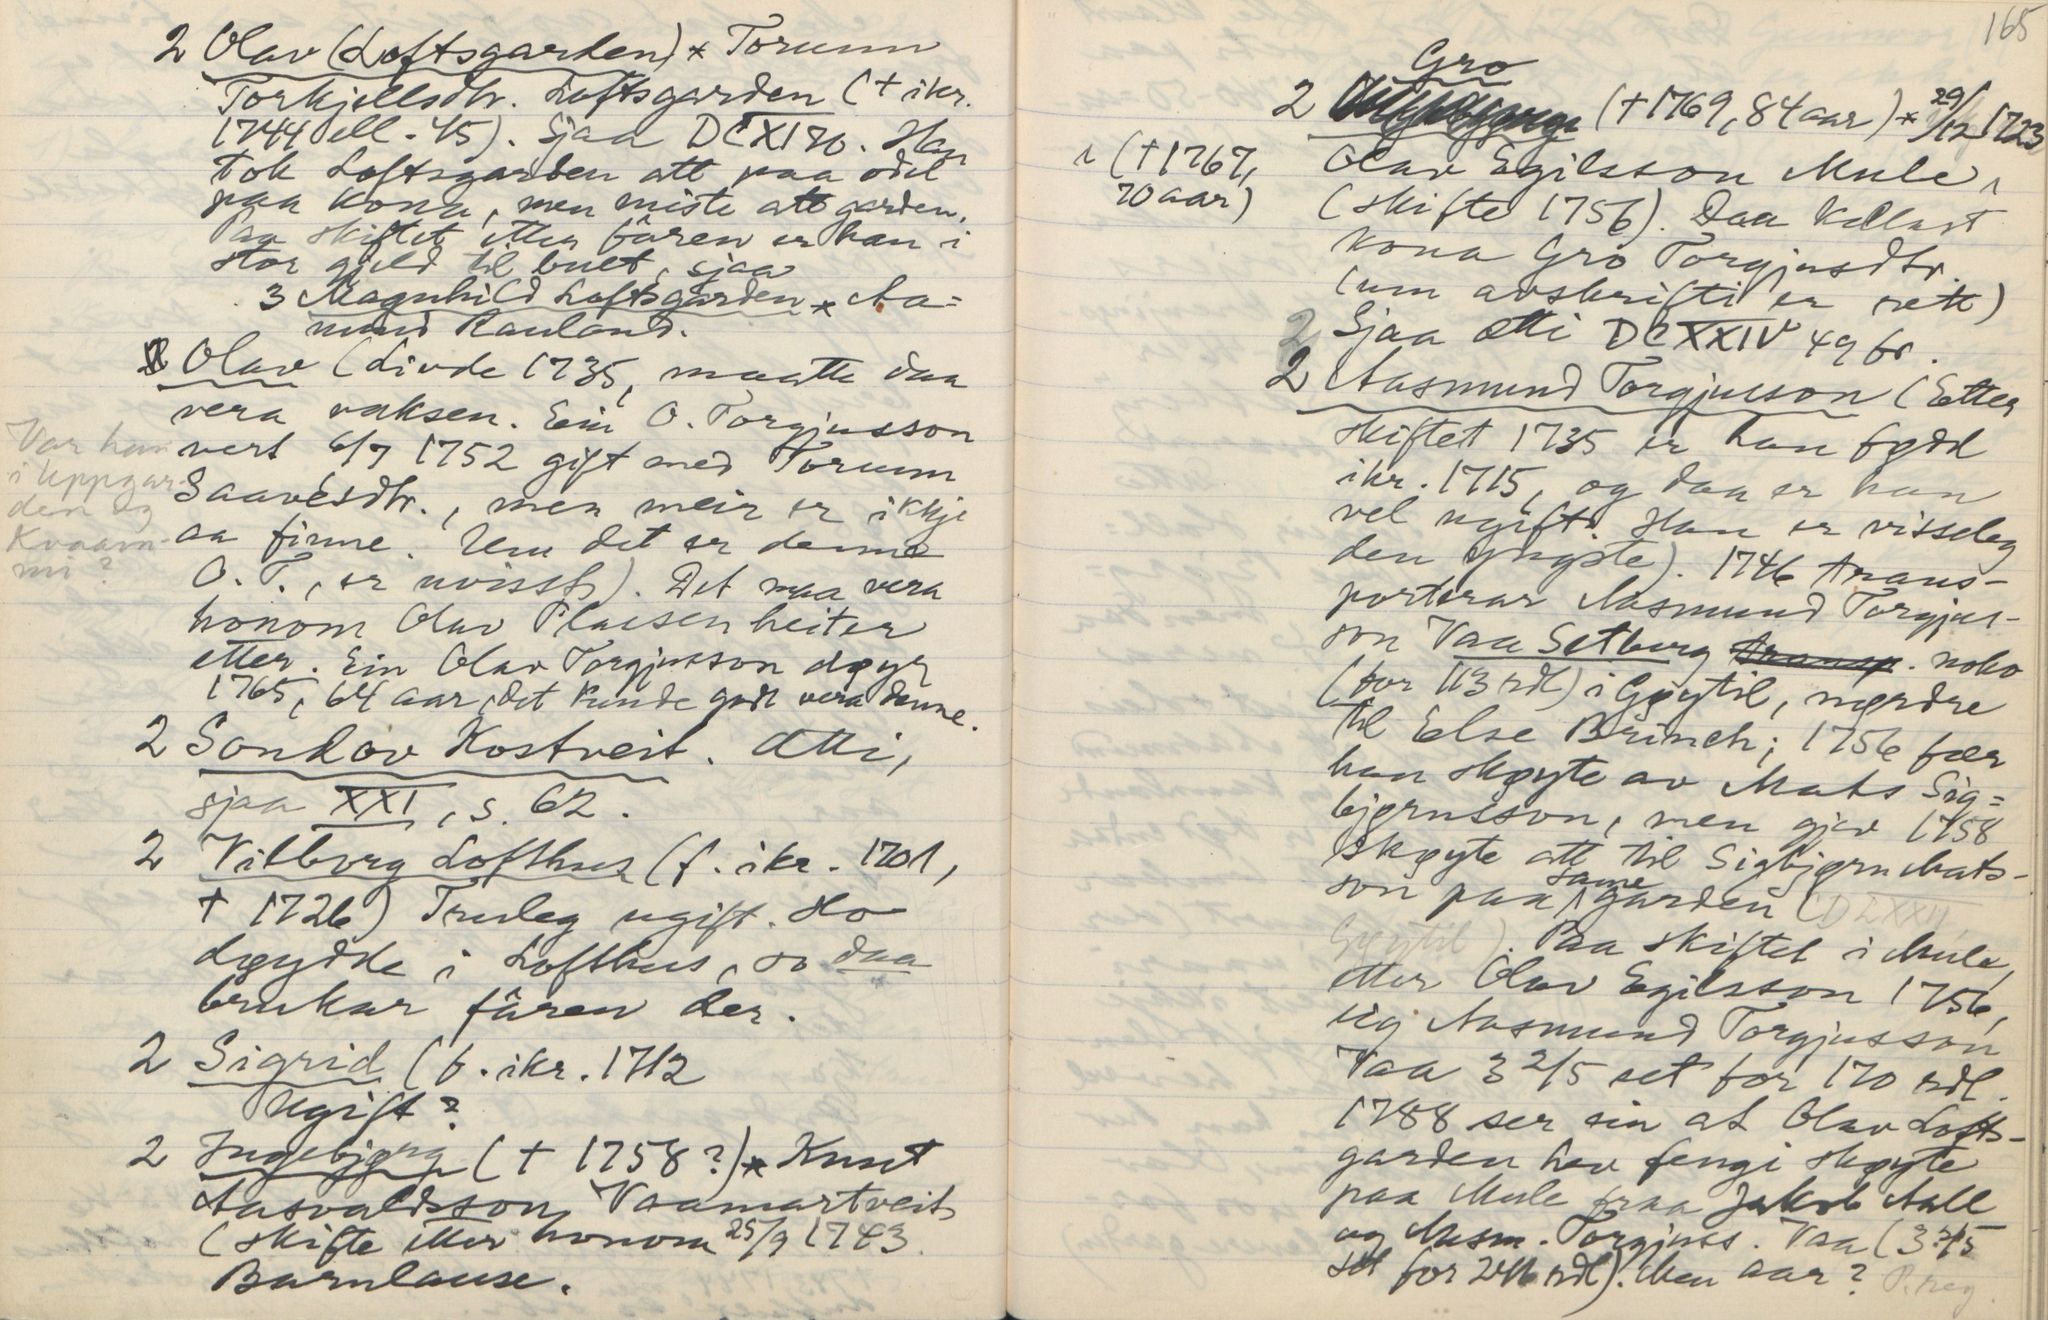 2 Olav (Loftsgarden) * Torunn
Torkjellsdtr. Loftsgarden († ikr.
1744 ell. 45). Sjaa DCXI 70. Han
tok Loftsgarden att paa odel
paa kona, men miste att garden.
Paa skiftet etter fåren er han i
stor gjeld til buet, sjaa
3 Magnhild Loftsgarden * Aa=
mund Rauland.
2 Olav (Livde 1735, maatte daa
vera vaksen. Ein O. Torgjusson
vert 6/7 1752 gift med Torunn
Saavesdtr., men meir er ikkje
aa finne. Um det er denne
O. T., er uvisst). Det maa vera
honom Olav Plassen heiter
etter. Ein Olav Torgjusson døyr
1765, 64 aar, det kunde godt vera denne.
Var han
i Uppgar-
den og
Kvaam-
mi?
2 Sondov Kostveit. Atti,
sjaa XXI, s. 62.
2 Vilborg Lofthus (f. ikr. 1701,
† 1726) Truleg ugift. Ho
døydde i Lofthus, so daa
brukar fåren der.
2 Sigrid (f. ikr. 1712
Ugift?
2 Ingebjørg († 1758?) * Knut
Aasvaldsson Vaamartveit
(skifte etter honom 25/9 1743.
Barnlause.
165
Gro
2 († 1769, 84 aar) * 29/12 1723
Olav Egilsson Mule
(† 1767,
70 aar)
(skifte 1756). Daa kallast
kona Gro Torgjusdtr.
(um avskrifti er rett)
2 Sjaa atti DCXXIV 49 fr.
2 Aasmund Torgjusson (Etter
skiftet 1735 er han fødd
ikr. 1715, og daa er han
vel ugift. Han er visseleg
den yngste). 1746 trans-
porterar Aasmund Torgjus-
son Vaa Setberg transp. noko
(for 113 rdl) i Gøytil, nørdre
til Else Brinch; 1756 fær
han skøyte av Mats Sig=
bjørnsson, men gjev 1758
skøyte att til Sigbjørn Mats-
son paa same garden (DLXXII
Gøytil). Paa skiftet i Mule,
etter Olav Egilsson 1756,
eig Aasmund Torgjusson
Vaa 3 2/5 set for 170 rdl.
1788 ser ein at Olav Lofts-
garden hev fengi skøyte
paa Mule fraa Jakob Aall
og Aasm. Torgjuss. Vaa (3 2/5
set for 246 rdl). Men aar? P.reg.